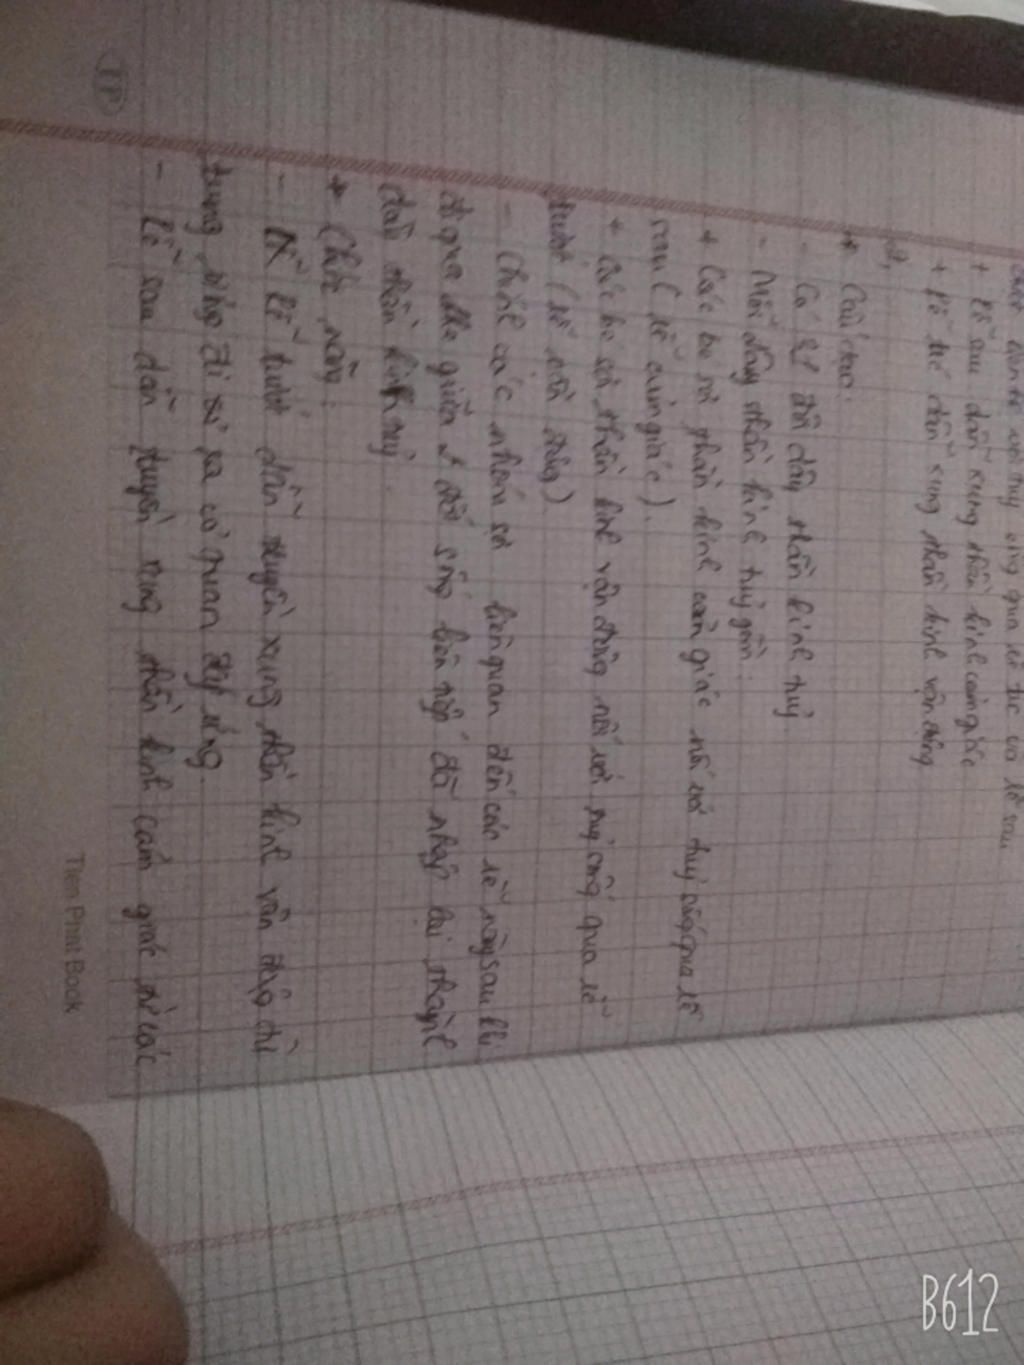 + Rễ sau dẫn xung thần kinh cảm giác
+ Rễ trước dẫn xung thần kinh vận động
* Cấu tạo:
- Có 31 đôi dây thần kinh tuỷ
- Mỗi dây thần kinh tuỷ gồm:
+ Các bó sợi thần kinh cảm giác nối với tuỷ sống qua rễ
sau (rễ cảm giác).
+ Các bó sợi thần kinh vận động nối với tuỷ sống qua rễ
trước (rễ vận động)
- Chính các nhóm sợi liên quan đến các rễ này sau khi
đi qua khe giữa 2 đốt sống liên tiếp đã nhập lại thành
dây thần kinh tuỷ.
* Chức năng:
- Rễ trước dẫn truyền xung thần kinh vận động từ
trung ương đi ra cơ quan đáp ứng.
- Rễ sau dẫn truyền xung thần kinh cảm giác từ các
Tien Phat Book
TP
B612